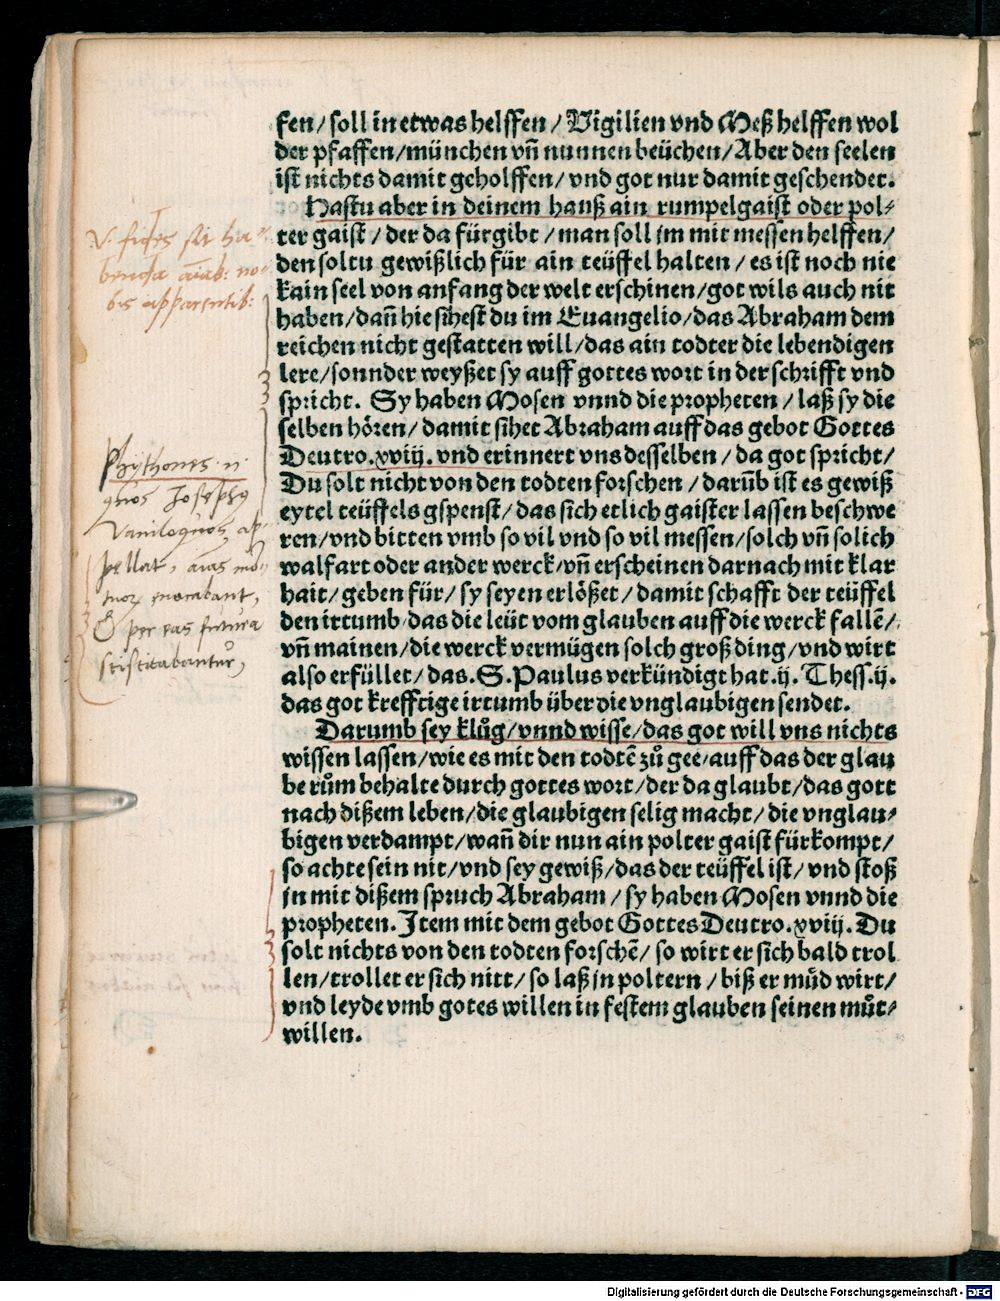 fen/ soll in etwas helffen / Vigilien vnd Meß helffen wol
der pfaffen/münchen vñ nunnen beüchen/Aber den seelen
ist nichts damit geholffen/ vnd got nur damit geschendet.
Hastu aber in deinem hauß ain rumpelgaist oder pol⸗
ter gaist / der da fürgibt / man soll jm mit messen helffen/
den soltu gewißlich für ain teüffel halten / es ist noch nie
kain seel von anfang der welt erschinen/got wils auch nit
haben/dañ hie sihest du im Euangelio/das Abraham dem
reichen nicht gestatten will/das ain todter die lebendigen
lere/sonnder weyßet sy auff gottes wort in der schrifft vnd
spricht. Sy haben Mosen vnnd die propheten / laß sy die
selben hören/ damit sihet Abraham auff das gebot Gottes
Deutro.xviij. vnd erinnert vns desselben / da got spricht/
Du solt nicht von den todten forschen / darüb ist es gewiß
eytel teüffels gspenst/ das sich etlich gaister lassen beschwe
ren/vnd bitten vmb so vil vnd so vil messen/solch vñ solich
walfart oder ander werck/vñ erscheinen darnach mit klar
hait/ geben für/ sy seyen erlößet/ damit schafft der teüffel
den irtumb das die leüt vom glauben auff die werck fallē/
vñ mainen/die werck vermügen solch groß ding/vnd wirt
also erfüllet/das.S.Paulus verkündigt hat.ij. Thess.ij.
das got krefftige irtumb über die vnglaubigen sendet.
Darumb sey klůg/vnnd wisse/das got will vns nichts
wissen lassen/wie es mit den todtē zů gee/auff das der glau
be rům behalte durch gottes wort/der da glaubt/das gott
nach dißem leben/die glaubigen selig macht/ die vnglau⸗
bigen verdampt/wañ dir nun ain polter gaist fürkompt/
so achte sein nit/vnd sey gewiß/das der teüffel ist/ vnd stoß
jn mit dißem spruch Abraham / sy haben Mosen vnnd die
propheten. Item mit dem gebot Gottes Deutro.xviij. Du
solt nichts von den todten forschē/ so wirt er sich bald trol
len/trollet er sich nitt/ so laß jn poltern / biß er můd wirt/
vnd leyde vmb gotes willen in festem glauben seinen můt⸗
willen.
V. fides sit ha⸗
benda aīab: no
bis apparentib:
Phythones
quos Josephus
Vaniloquos, ap
pellat, aīas mo
rtuor evocabant,
& per eas futura
sciscitabantur,
Digitalisierung gefördert durch die Deutsche Forschungsgemeinschaft - DFG